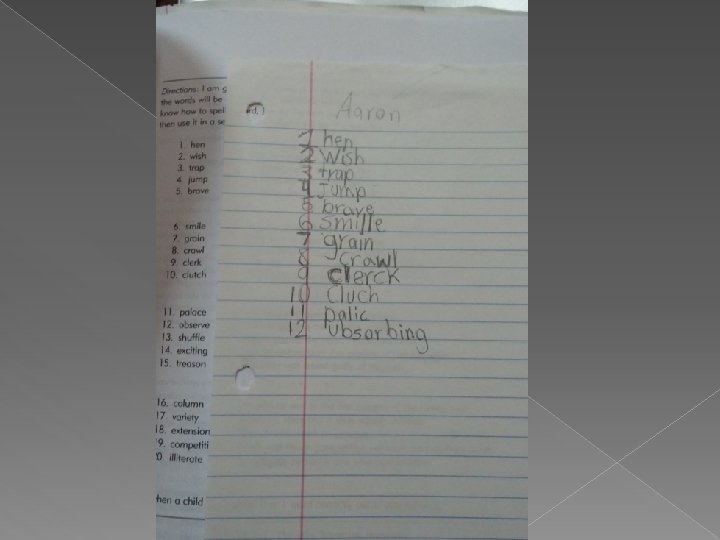 Directions: I am g
the words will be
know how to spell
then use it in a se
1. hen
2. wish
3. trap
4. jump
5. brave
6. smile
7. grain
8. crawl
9. clerk
10. clutch
11. palace
12. observe
13. shuffle
14. exciting
15. treason
16. column
17. variety
18. extension
9. competiti
0. illiterate
hen a child
rd.)
Aaron
1 hen
2 Wish
3 trap
4 Jump
5 brave
6 smille
7 grain
8 crawl
9 clerck
10 Cluch
11 palic
12 ubsorbing